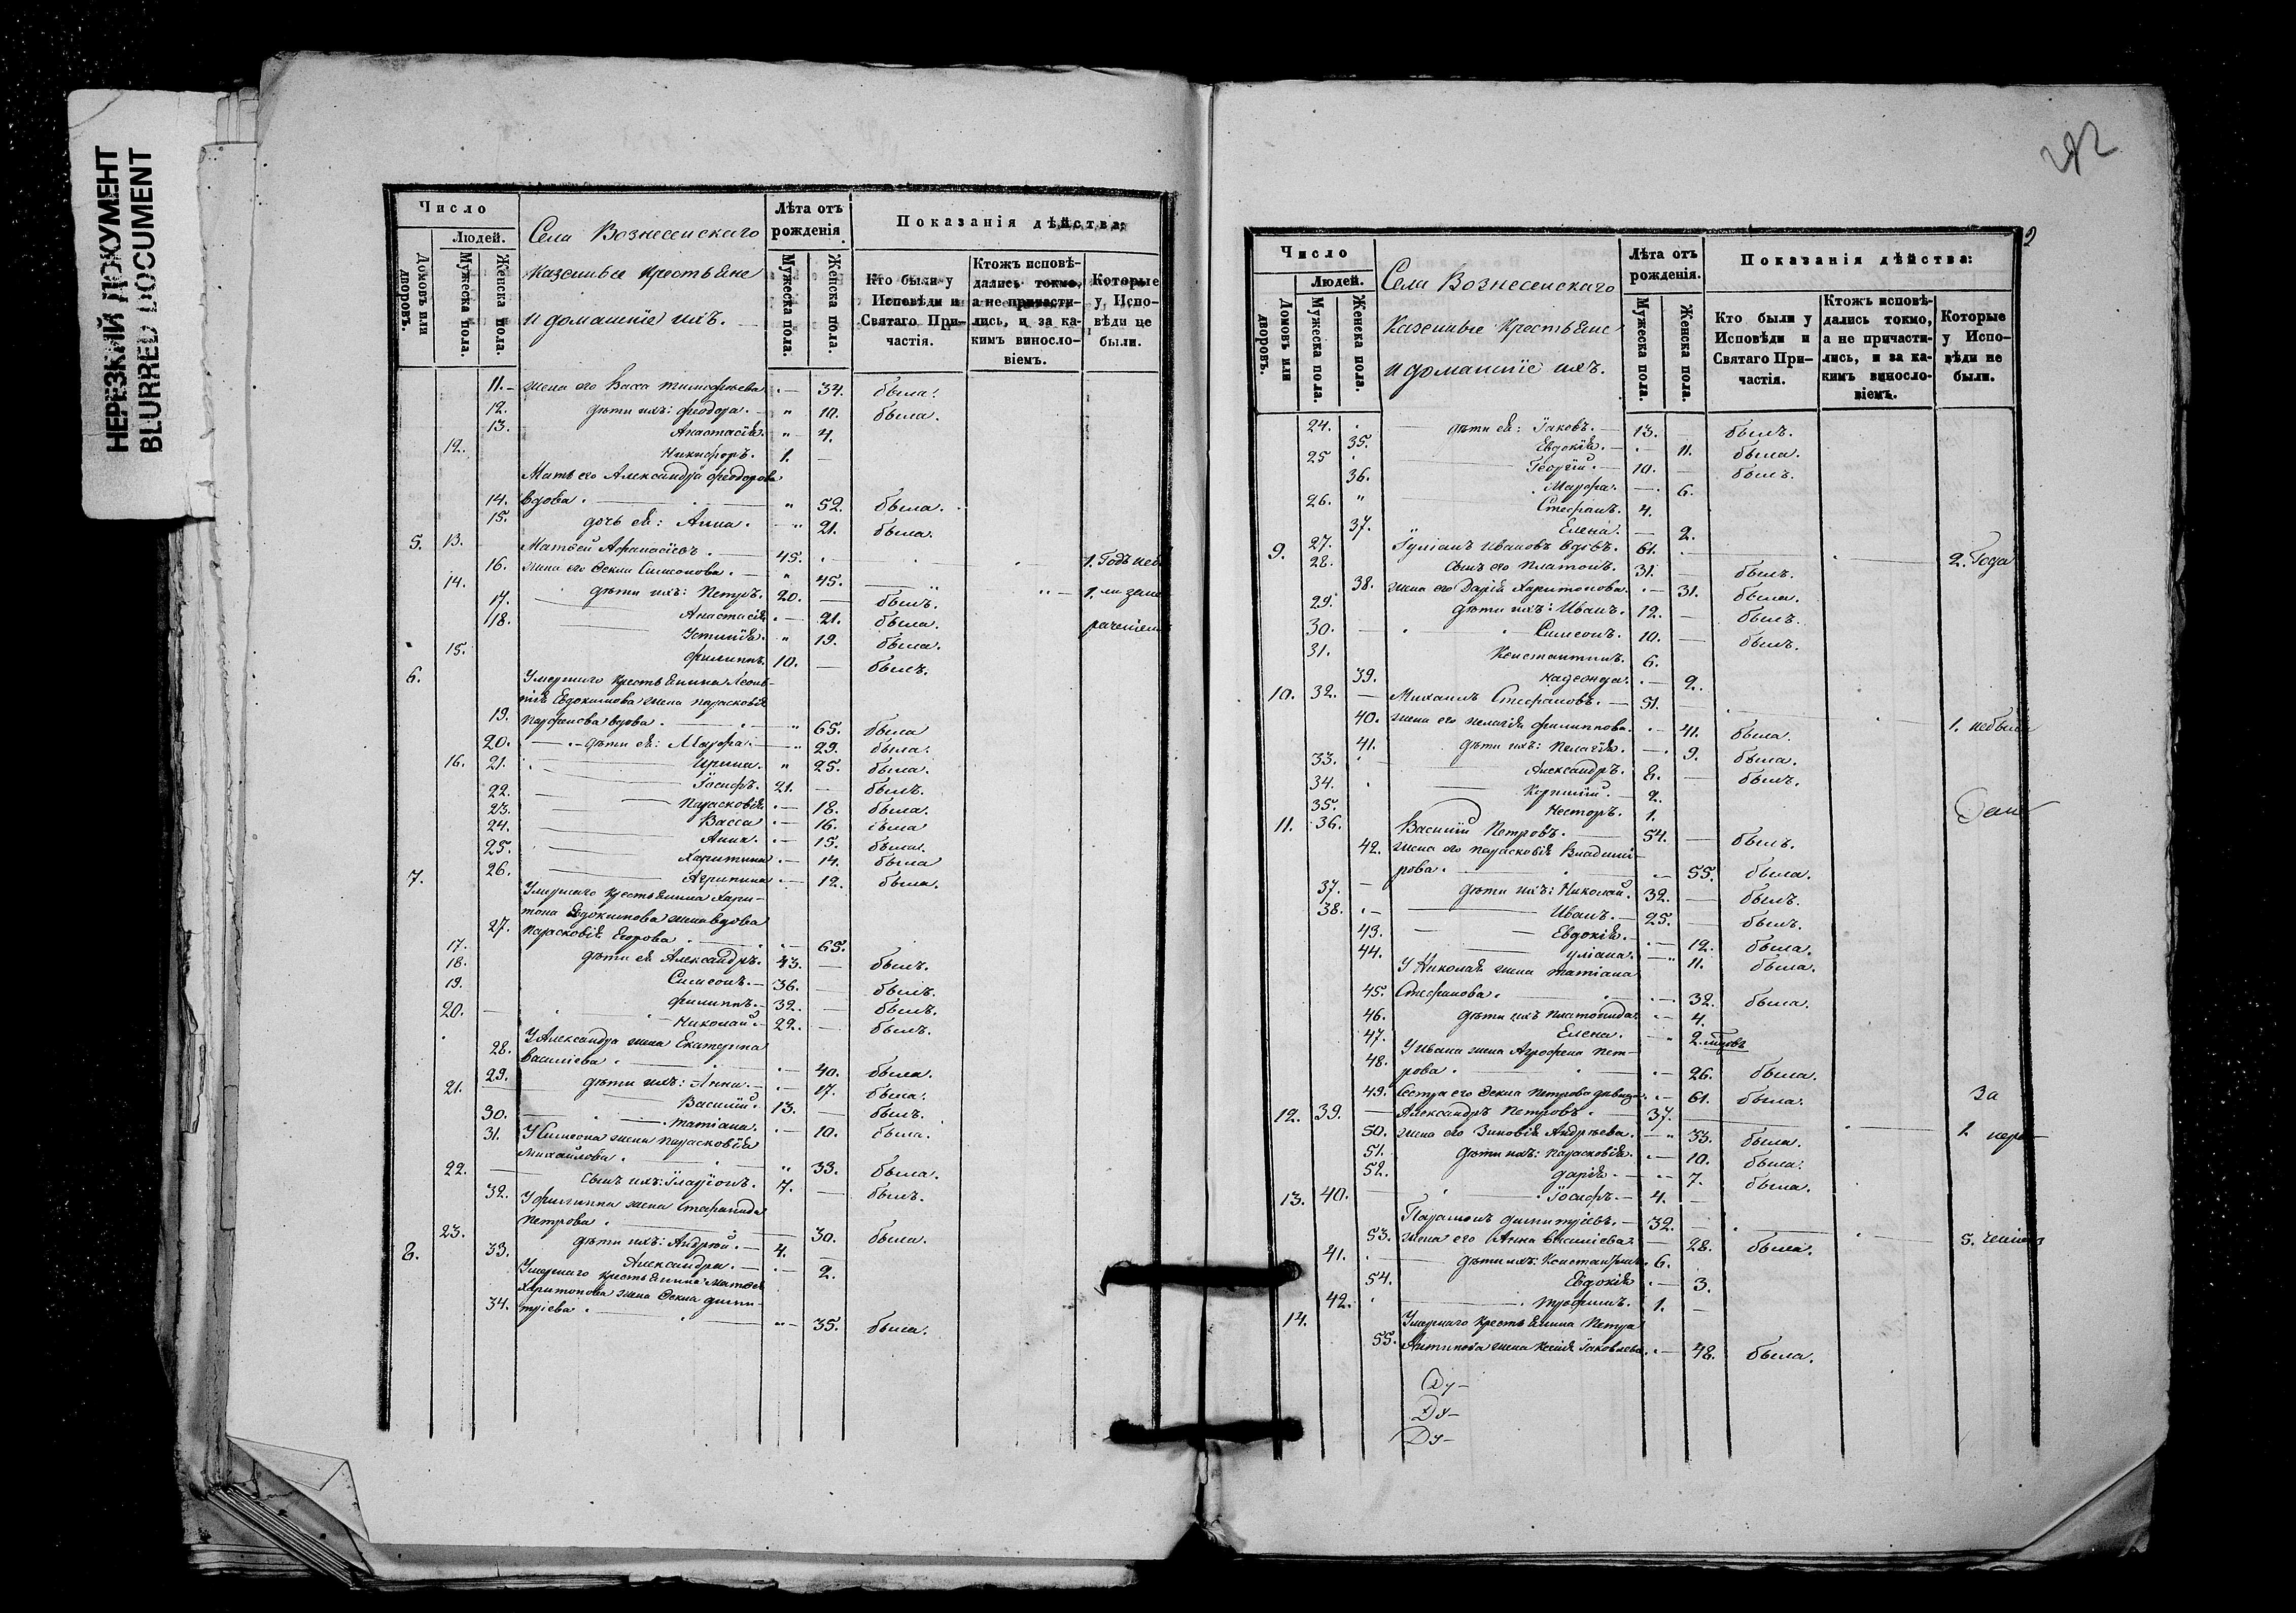 НЕРЕЗКИЙ ДОКУМЕНТ
BLURRED DOCUMENT
Число
Людей.
Домовъ или дворовъ.
Мужеска пола.
Женска пола.
Села Вознесенскаго
казенные крестьяне
и домашніе ихъ.
Лѣта отъ рожденія
Мужеска пола.
Женска пола.
Показанія дѣйства:
Кто были у Исповѣди и Святаго Причастія.
Ктожъ исповѣдались токмо, а не причастились, и за какимъ винословіемъ.
Которые у Исповѣди не были.
11. жена его Васса Тимофѣева. 34. была.
12. дѣти ихъ: Феодора. " 10. была.
13. Анастасія. " 4.
12. Никифоръ. 1.
Мать его Александра Феодорова
14. вдова. " 52. была.
15. дочь ея: Анна. " 21. была.
5. 13. Матвей Афанасіевъ. 45. 1. Годъ
16. жена его Фекла Симеонова. " 45.
14. дѣти ихъ: Петръ. 20. былъ.
17. Анастасія. 21. была.
18. Устинія. " 19. была.
15. Филиппъ. 10. былъ.
6. Умершаго крестьянина Леон-
тія Евдокимова жена Парасковія
19. Парфенова вдова. " 65. была
20. дѣти ея: Марфа. " 29. была.
16. 21. Ирина. " 25. была.
Іосифъ. 21. былъ.
22. Парасковія. 18. была.
23. Васса 16. была
24. Анна. 15. была.
25. Харитина 14. была
26. Агрипина 12. была.
7. Умершаго крестьянина Хари-
тона Евдокимова жена вдова
27. Парасковія Егорова. 65.
17. дѣти ея Александръ. 43. былъ.
18. Симеонъ. 36. былъ.
19. Филиппъ. 32. былъ.
20. Николай. 22. былъ.
У Александра жена Екатерина
28. Василіева. 40. была.
29. дѣти ихъ: Анна. 17. была.
21. Василій. 13. былъ.
30. Татіана. 10. была.
31. У Симеона жена Парасковія
Михайлова. " 33. была.
22. сынъ ихъ: Иларіонъ. 7. былъ.
32. У Филиппа жена Стефанида
Петрова. 30. была.
23. дѣти ихъ: Андрей. 4.
33. Александра. 2.
8. Умершаго крестьянина Матвея
Харитонова жена Фекла Дими-
34. тріева. 35. была.
292
2
Число
Людей.
Домовъ или дворовъ.
Мужеска пола.
Женска пола.
Села Вознесенскаго
Казенные Крестьяне
и домашніе ихъ.
Лѣта отъ рожденія.
Мужеска пола.
Женска пола.
Показанія дѣйства:
Кто были у Исповѣди и Святаго Причастія.
Ктожъ исповѣдались токмо, а не причастились, и за какимъ винословіемъ.
Которые у Исповѣди не были.
24. дѣти ея: Іаковъ. 13. былъ.
35. Евдокія. 11. была.
25 Георгій. 10. былъ.
36. Марфа. 6.
26. " Стефанъ. 4.
37. Елена. 2.
9. 27. Іуліанъ Ивановъ вдовъ. 61. 2. Года
28. сынъ его Платонъ. 31. былъ.
38. жена его Дарія Харитонова. 31. была.
29. дѣти ихъ: Иванъ. 12. былъ.
30. Симеонъ. 10. былъ.
31. Константинъ. 6.
39. Надежда. 2.
10. 32. Михаилъ Стефановъ. 51. 1. небыл
40. жена его Пелагія Филиппова. 41. была.
41. дѣти ихъ: Пелагія. 9. была.
33. Александръ. 8. былъ.
34. Корнилій. 2.
35. Несторъ. 1.
11. 36. Василій Петровъ. 54. былъ.
42. жена его Парасковія Владими-
рова. 55. была.
37. дѣти ихъ: Николай. 32. былъ.
38. Иванъ. 25. былъ.
43. Евдокія. 12. была.
44. Уліана. 11. была.
У Николая жена Татіана
45. Стефанова. 32. была.
46. дѣти ихъ Платонида. 4.
47. Елена. 2.
У Ивана жена Агрофена Пет-
48. рова. 26. была.
49. Сестра его Фекла Петрова девица. 61. была. За
12. 39. Александръ Петровъ. 37. 1.
50. жена его Зиновія Андрѣева. 33. была.
51. дѣти ихъ: Парасковія. 10. была.
52. Дарія. 7. была.
13. 40. Іосифъ. 4.
Парамонъ Димитріевъ. 32. 5.
53. жена его Анна Василіева. 28. была.
41. дѣти ихъ: Константинъ. 6.
54. Евдокія 3.
42. Трофимъ. 1.
14. Умершаго крестьянина Петра
55. Антипова жена Ксенія Іаковлева. 48. была.
Ду-
Ду-
Ду-